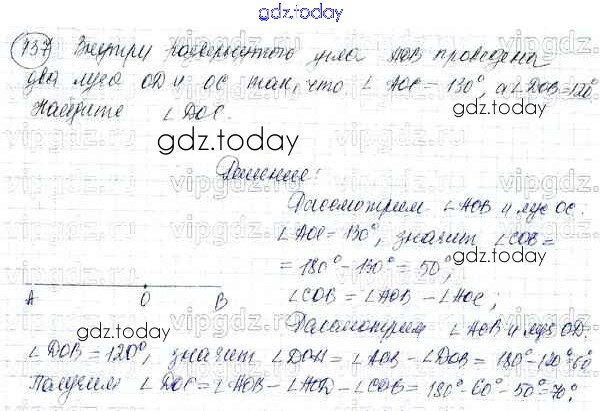 gdz.today
137 Внутри развернутого угла АОВ проведены
два луча OD и ОС так, что ∠ АОС = 130°, а ∠DOB = 120°
Найдите ∠ DOC.
gdz.today
gdz.today
Решение:
Рассмотрим ∠AOB и луч ОС.
∠AOC = 130°, значит ∠COB =
= 180° - 130° = 50°;
gdz.today
∠COB = ∠AOB - ∠AOC;
A O B
gdz.today
Рассмотрим ∠AOB и луч OD.
∠DOB = 120°, значит ∠DOA = ∠AOB - ∠DOB = 180° - 120° = 60°
gdz.today
Получим ∠DOC = ∠AOB - ∠AOD - ∠COB = 180° - 60° - 50° = 70°.